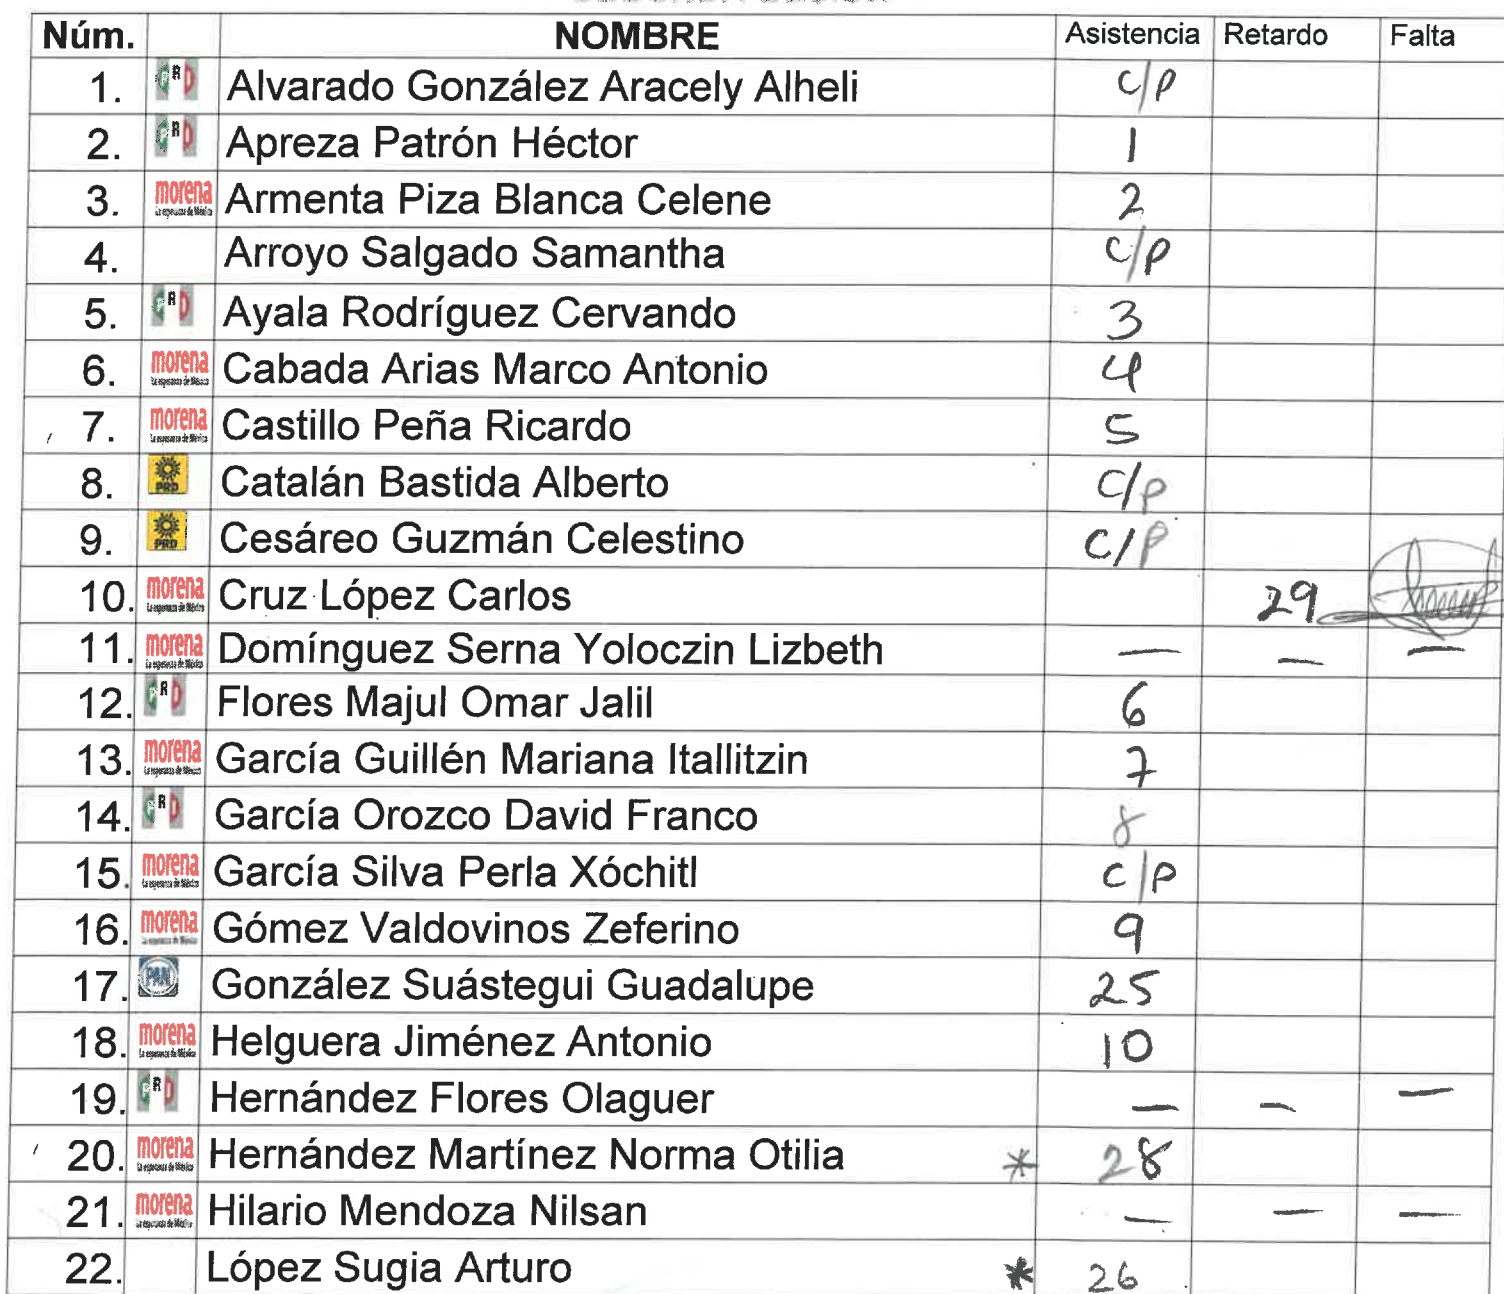 Núm. NOMBRE Asistencia Retardo Falta
1. PRD Alvarado González Aracely Alheli C/P
2. PRD Apreza Patrón Héctor 1
3. morena La esperanza de México Armenta Piza Blanca Celene 2
4. Arroyo Salgado Samantha C/P
5. PRD Ayala Rodríguez Cervando 3
6. morena La esperanza de México Cabada Arias Marco Antonio 4
7. morena La esperanza de México Castillo Peña Ricardo 5
8. PRD Catalán Bastida Alberto C/P
9. PRD Cesáreo Guzmán Celestino C/P
10. morena La esperanza de México Cruz López Carlos 29
11. morena La esperanza de México Domínguez Serna Yoloczin Lizbeth — — —
12. PRD Flores Majul Omar Jalil 6
13. morena La esperanza de México García Guillén Mariana Itallitzin 7
14. PRD García Orozco David Franco 8
15. morena La esperanza de México García Silva Perla Xóchitl C/P
16. morena La esperanza de México Gómez Valdovinos Zeferino 9
17. PAN González Suástegui Guadalupe 25
18. morena La esperanza de México Helguera Jiménez Antonio 10
19. PRD Hernández Flores Olaguer — — —
20. morena La esperanza de México Hernández Martínez Norma Otilia * 28
21. morena La esperanza de México Hilario Mendoza Nilsan — — —
22. López Sugia Arturo * 26